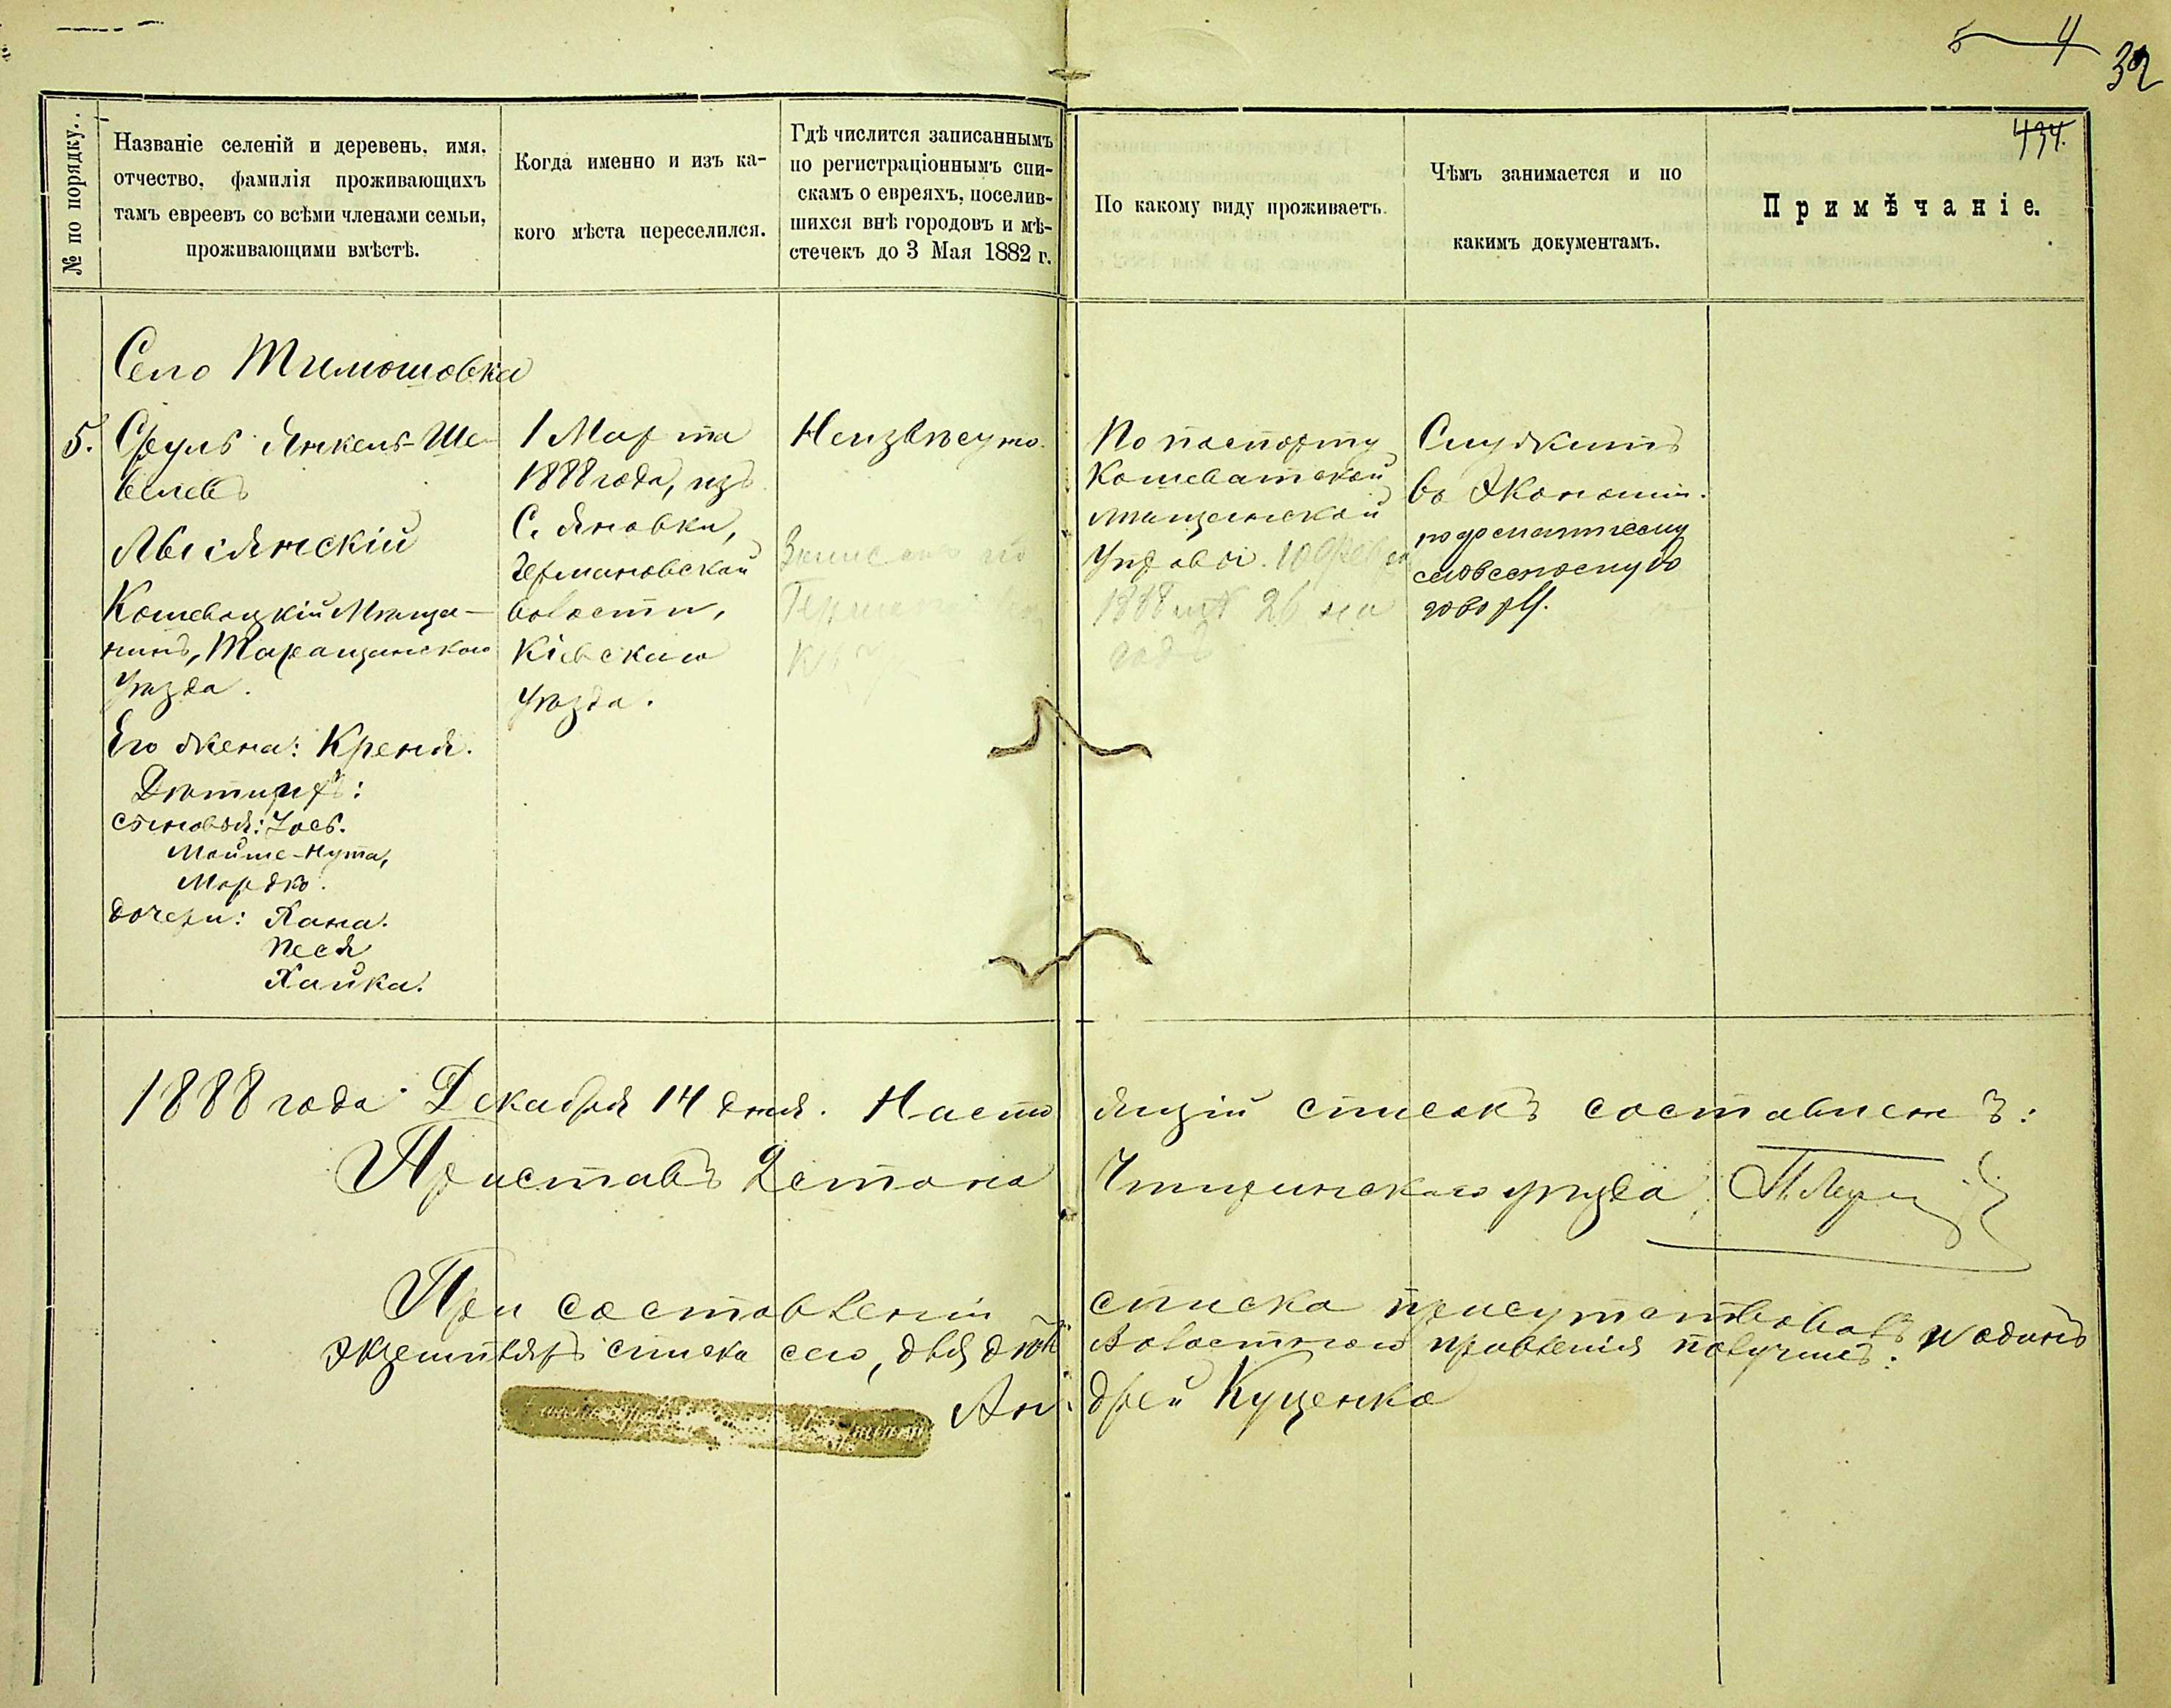 5 4
32
434.
№ по порядку.
Названіе селеній и деревень, имя,
отчество, фамилія проживающихъ
тамъ евреевъ со всѣми членами семьи,
проживающими вмѣстѣ.
Когда именно и изъ ка-
кого мѣста переселился.
Гдѣ числится записаннымъ
по регистраціоннымъ спи-
скамъ о евреяхъ, поселив-
шихся внѣ городовъ и мѣ-
стечекъ до 3 Мая 1882 г.
По какому виду проживаетъ.
Чѣмъ занимается и по
какимъ документамъ.
Примѣчаніе.
Село Тимошовка
5.
Сруль Янкель-Ше-
велевъ
Лысянскій
Кошевацкій Мѣща-
нинъ, Таращанскаго
уѣзда.
Его жена: Креня.
Дѣти ихъ:
сыновья: Іось.
Мойше-Нута,
Мордко.
дочери: Хана.
Песя
Хайка.
1 Марта
1888 года, изъ
С. Яновки,
Германовской
волости,
Кіевскаго
Уѣзда.
Неизвѣстно.
По паспорту
Кошеватской
мѣщанской
Управы. 10
1888 № 26 на
годъ
Служитъ
во Экономіи.
по
словесному до
говору.
1888 года Декабря 14 дня. Насто ящій списокъ составленъ:
Приставъ 2 стана Чигиринскаго уѣзда
При составленіи списка присутствовалъ и одинъ
экземпляръ списка сего, для Волостного правленія получилъ:
Ан дрей Куценко